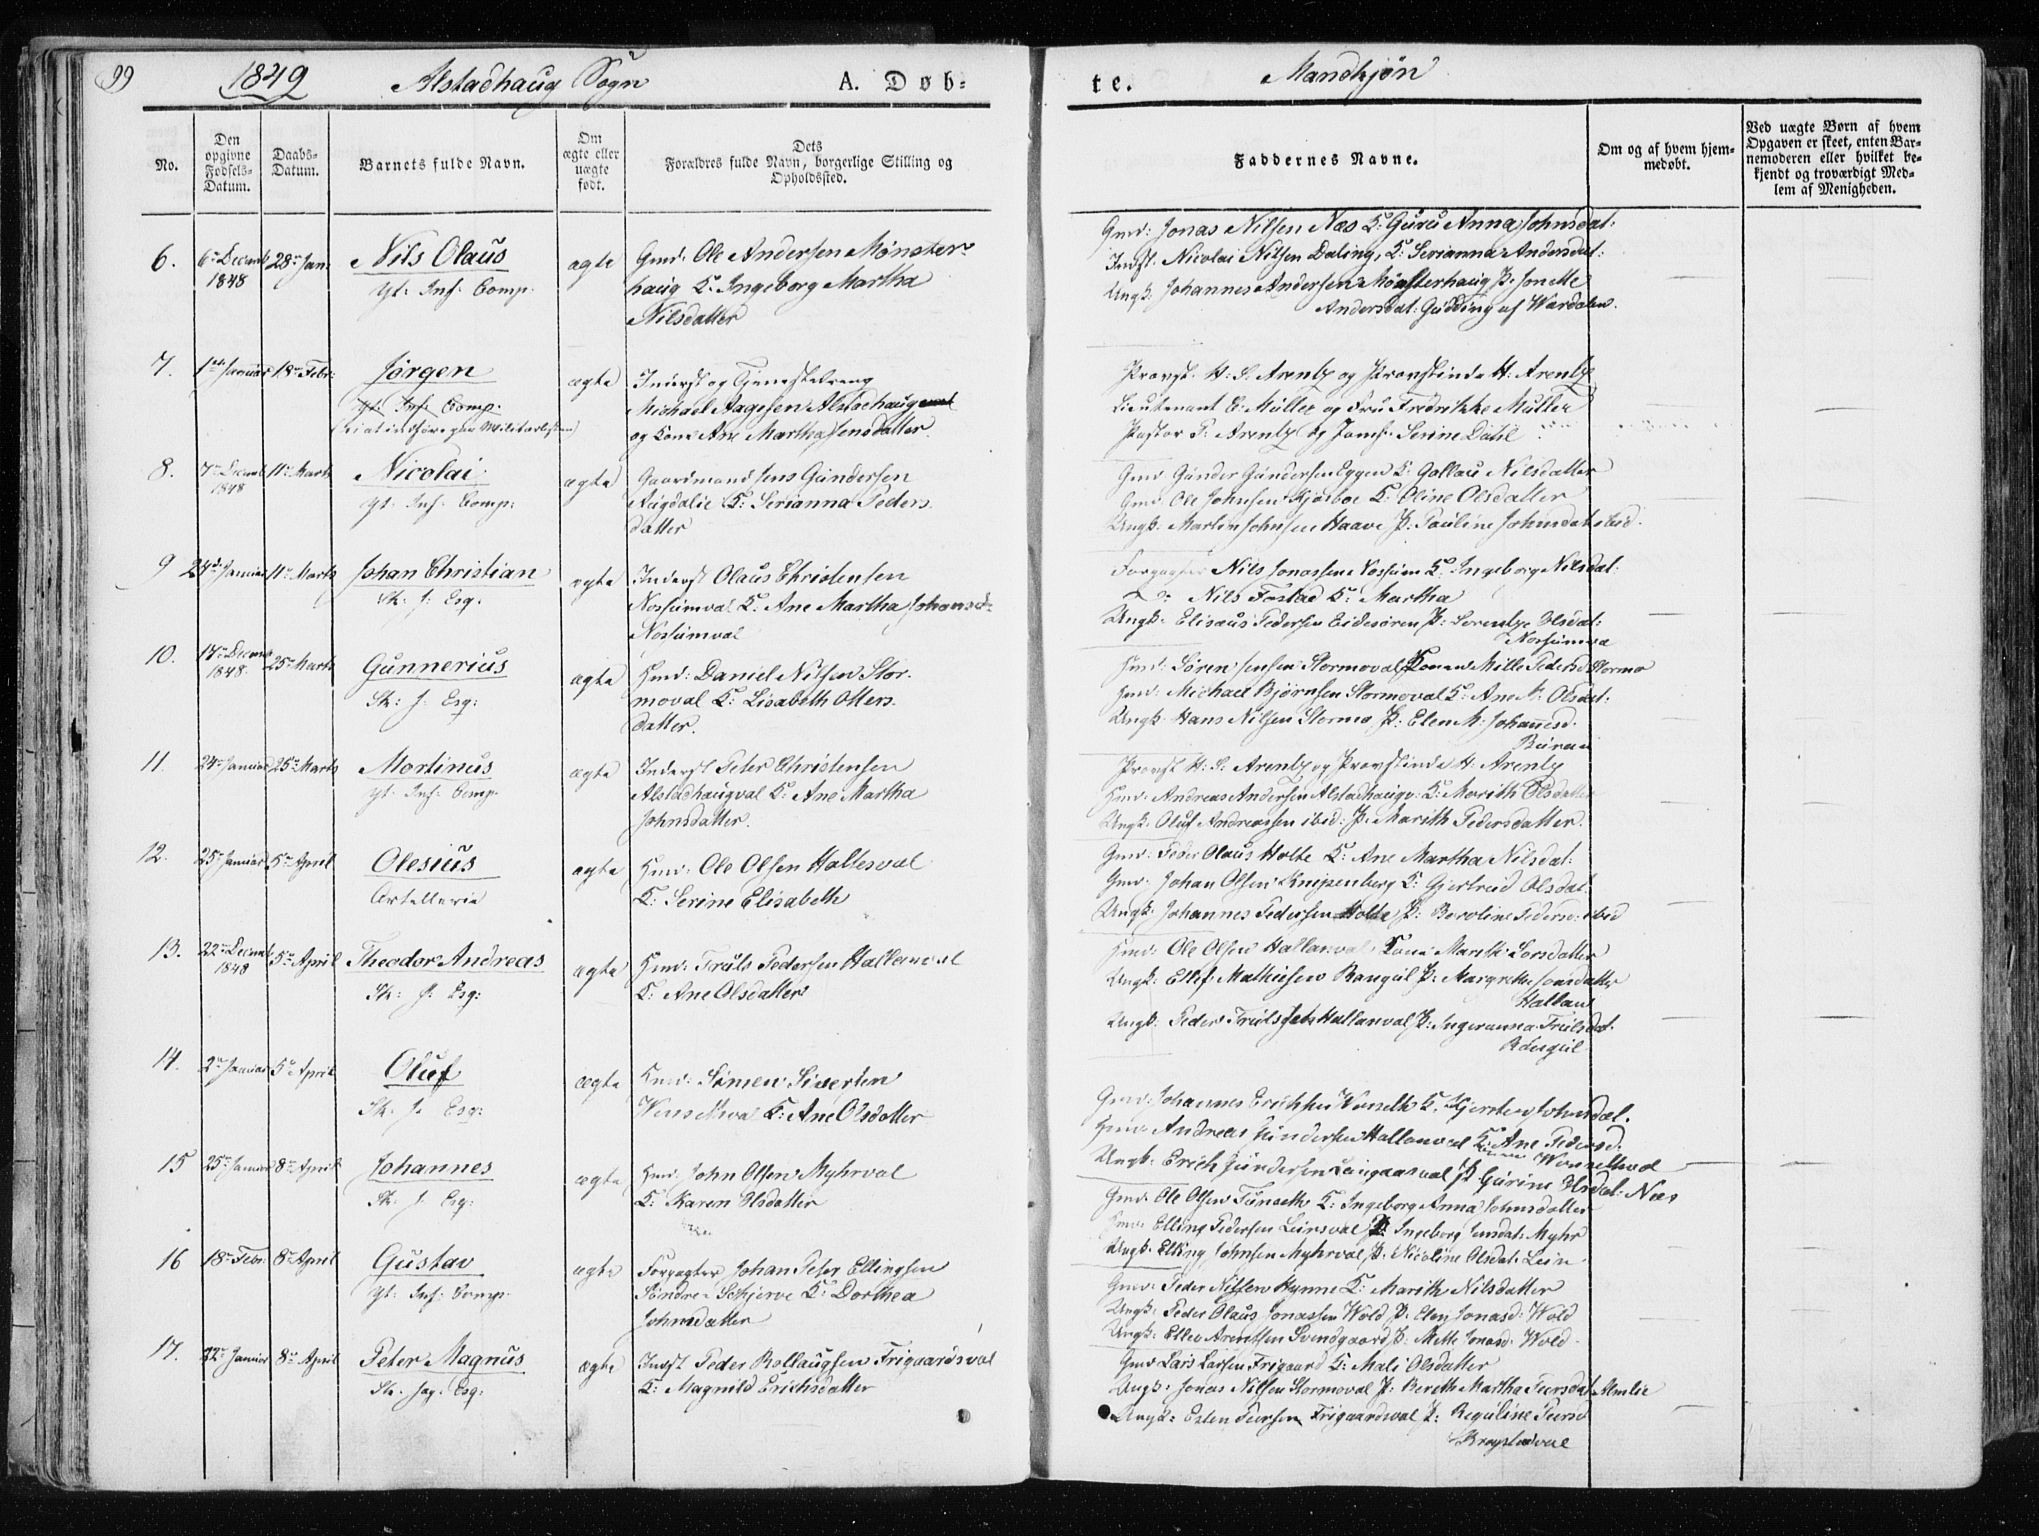 99
1849
Alstadhaug Sogn
A. Døb-
te.
Mandkjøn
No.
Den opgivne Fødsels-Datum.
Daabs-Datum.
Barnets fulde Navn.
Om ægte eller uægte født.
Dets Forældres fulde Navn, borgerlige Stilling og Opholdssted.
Faddernes Navne.
Om og af hvem hjem-medøbt.
Ved uægte Børn af hvem Opgaven er skeet, enten Bar-nemoderen eller hvilket be-kjendt og troværdigt Med-lem af Menigheden.
6. 6te Decemb 1848 28de Jan: Nils Olaus ægte
Yt: Inf: Comp.
Gmd: Ole Andersen Mønster-
haug K: Ingeborg Martha
Nilsdatter
Gmd: Jonas Nilsen Næs K: Guru Anna Johnsdat:
Indst. Nicolai Nilsen Daling, K: Serianna Andersdat:
Ungk: Johannes Andersen Mønsterhaug P: Jonette
Andersdat: Gudding af Wærdalen.
7. 1ste Januar 18de Febr: Jørgen ægte
Yt: Inf: Comp.
Inderst og Tjenestedreng
Michael Aagesen Alstadhaug
og Kone Ane Martha Jensdatter
Provst H: S: Arentz og Provstinde H: Arentz
Lieutenant C: Müller og Fru Fredrikke Müller
Pastor F: Arentz og Jomf: Serine Dahl
8. 7de Decemb 1848 11te Marts Nicolai ægte
Yt. Inf: Comp:
Gaardmand Jens Gundersen
Augdalie K: Serianna Peders
datter
Gmd Gunder Gundersen Eggen K: Nilsdatter
Gmd Ole Johnsen K: Oline Olsdatter
Ungk: Martin Johnsen Haave P: Pauline Johnsdat: ibid.
9 24de Januar 11te Marts Johan Christian ægte
Sk: J: Esq:
Inderst Olaus Christensen
Nossumval K: Ane Martha Johansd:
Nossumval
Forpagter Nils Jonassen Nossum K: Ingeborg Nilsdat:
Do Nils Fostad K: Martha
Ungk: Elisæus Pedersen Eidesøren P: Lorentze Olsdat:
Nossumva
10. 17de Decemb 1848. 25de Marts Gunnerius ægte
Sk: J: Esq:
Hmd: Daniel Nilsen Stor-
moval K: Lisabeth Otters
datter.
Hmd: Søren Jensen Stormoval Konen Mille Pedersd Stormo
Hmd: Michael Bjørnsen Stormoval K: Ane M: Olsdat:
Ungk Hans Nilsen Stormo P: Elen M: Johannesd.
11. 24de Januar 25de Marts Mortinus ægte
Yt. Inf: Comp.
Inderst Peter Christensen
Alstadhaugval K: Ane Martha
Johnsdatter.
Provst H: S: Arentz og Provstinde H: Arentz
Hmd: Andreas Andersen Alstadhaugv: K: Marith Olsdatter
Ungk: Oluf Andreassen ibid: P: Marith Pedersdatter.
12. 25de Januar 5te April Olesius ægte
Artellerie
Hmd: Ole Olsen Holtesval
K: Serine Elisabeth
Gmd: Peder Olaus Holte K: Ane Martha Nilsdat:
Gmd: Johan Olsen Knipenberg K: Gjertrud Olsdat.
Ungk: Johannes Pedersen Holte P: Beroline Pedersd: ibid
13. 22de Decemb 1848 5te April Theodor Andreas ægte
Sk: J: Esq:
Hmd: Truls Pedersen Hallemval
K: Ane Olsdatter
Hmd: Ole Olsen Hallanval Kone Marith Larsdatter
Ungk: Ellef Mathiesen P: Margrethe Jonsdatter
Hallan
Ungk: Peder Trulssen Hallanval P: Ingeranna Trulsdat.
14. 2de Januar 5te April Oluf ægte
Sk. J. Esq:
Hmd: Simen Sivertsen
K: Ane Olsdatter
Gmd: Johannes Erichsen K: Kjersten Johnsdat.
Hmd: Andreas Gundersen Hallanval K: Ane Pedersd:
Ungk: Erich Gundersen P: Gurine Olsdat: Næs
15 25de Januar 8de April Johannes ægte
Sk. J. Esq:
Hmd: John Olsen Myhrval
K: Karen Olsdatter
Gmd: Ole Olsen Tuneth K: Ingeborg Anna Johnsdatter
Hmd: Elling Pedersen Leinsval P: Ingeborg Jensdat: Myhr
Ungk: Elling Johnsen Myhrval P: Nicoline Olsdat: Lein
16 18de Febr: 8de April Gustav ægte
Yt: Inf: Comp.
Forpagter Johan Peter Ellingsen
Søndre Schjerve K: Dorthea
Johnsdatter
Gmd: Peder Nilsen Hynne K: Marith Nilsdatter
Ungk: Peder Olaus Jonassen Wold P: Elen Jonasd: Wold
Ungk: Ellev Arentsen Svendgaard P: Mette Jonasd: Wold
17. 22de Januar 8de April Peter Magnus ægte
Sk. Jag. Esq:
Indst Peder Rollaugsen Friigaardsval
K: Magnild Erichsdatter
Gmd Lars Larsen Frigaard K: Mali Olsdatter
Ungk: Jonas Nilsen Stormoval P: Bereth Martha Peersdat Almlie
Ungk: Esten Peersen Frigaardsval P: Reguline Peersd